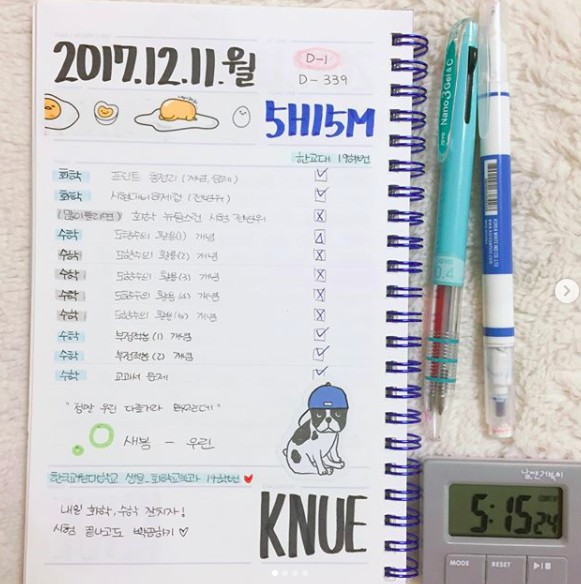 2017.12.11.월
D-1
D-339
5H15M
한교대 19학번
화학 프린트 총정리 (개념, 문제) ☑
화학 시험대비문제집 (전범위) ☑
화학 뉴탐스런 시험 전범위 ☒
수학 도함수의 활용(1) 개념 △
수학 도함수의 활용(2) 개념 ☒
수학 도함수의 활용(3) 개념 ☒
수학 도함수의 활용(4) 개념 ☒
수학 도함수의 활용(4) 개념 ☒
수학 부정적분 (1) 개념 ☑
수학 부정적분 (2) 개념 ☑
수학 교과서 문제 ☑
" 정말 우린 다를거라 믿었는데 "
새봄 - 우린
한국교원대학교 생물-화학교육과 19학번 ♥
내일 화학, 수학 잘치자!
시험 끝나고도 빡공하기 ♡
KNUE
Nano 3 Gel & C
0.4
5:15 24
MODE
RESET